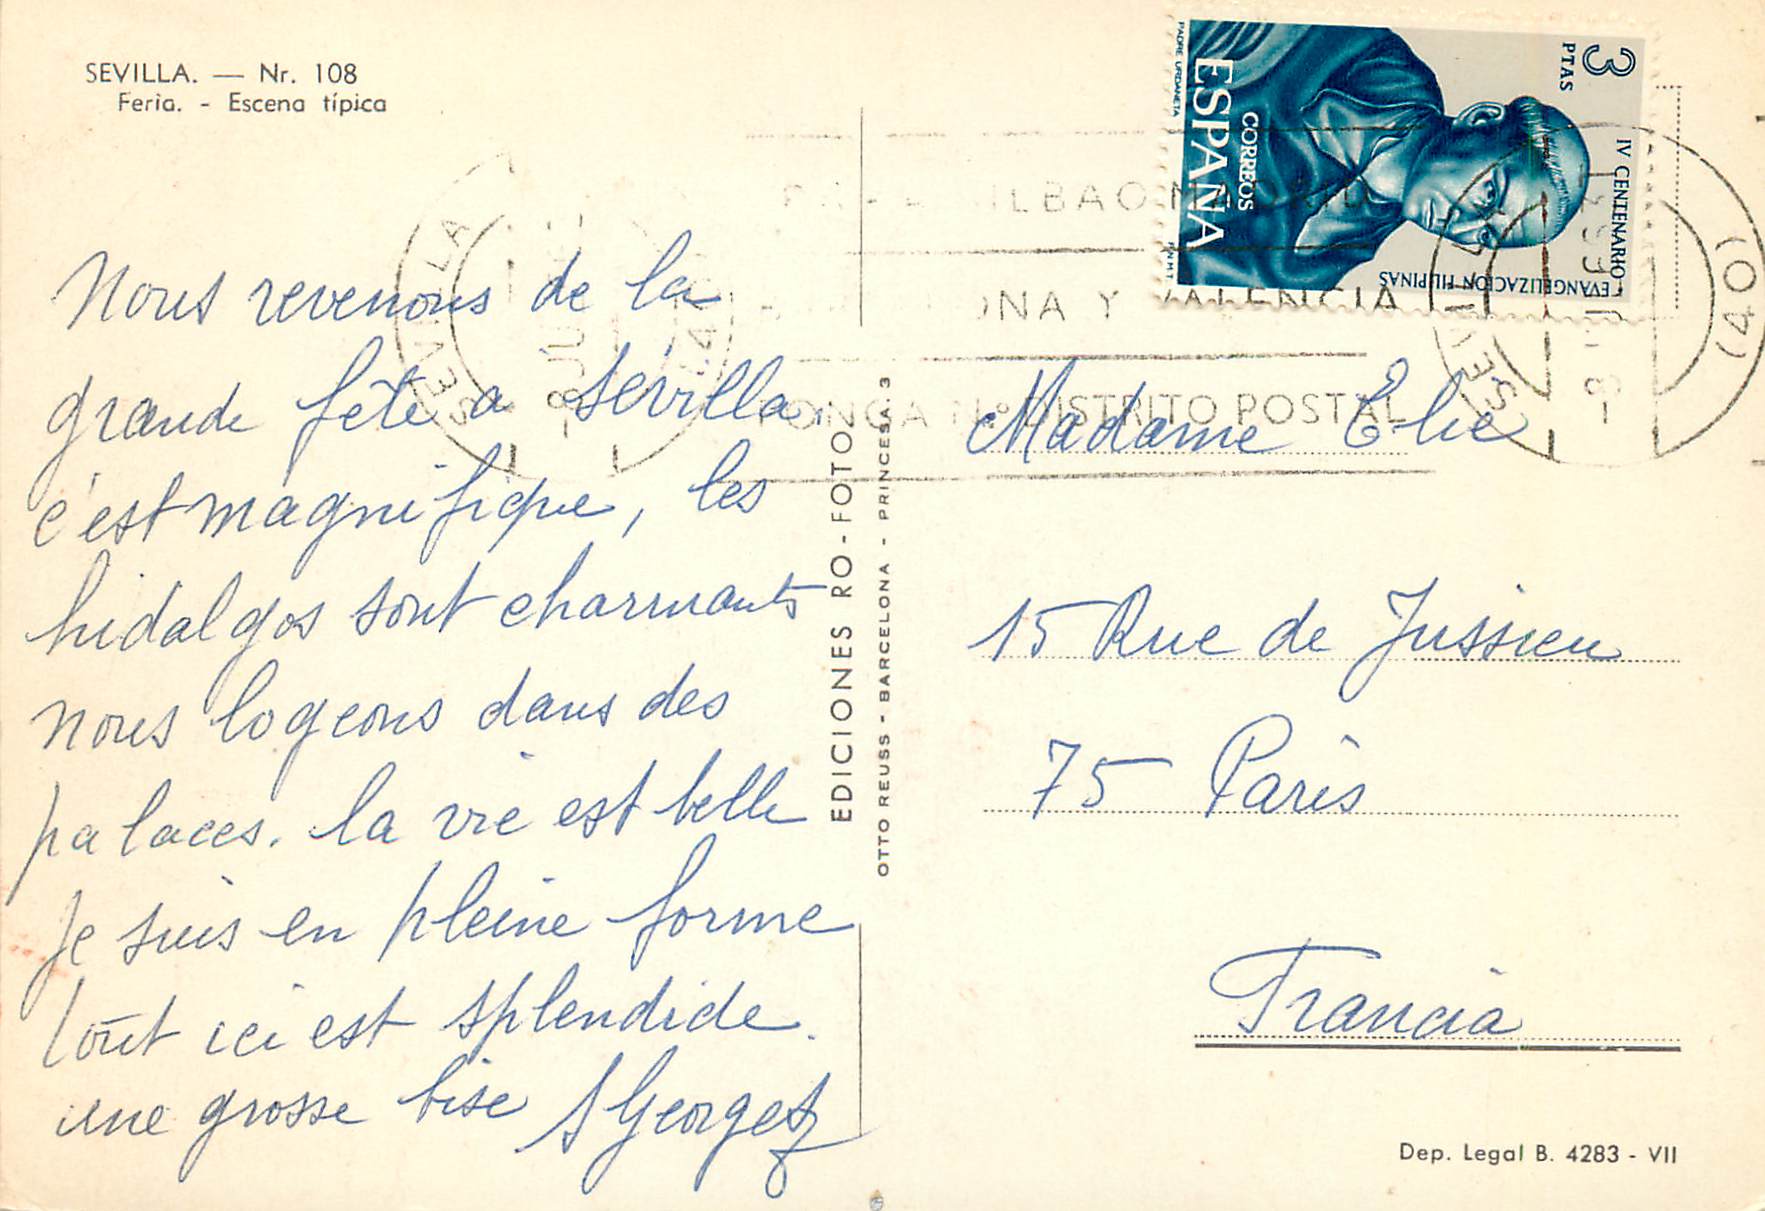 SEVILLA. — Nr. 108
Feria. - Escena típica
Nous revenons de la
grande fête a Sévilla,
c'est magnifique, les
hidalgos sont charmants
nous logeons dans des
palaces. la vie est belle
Je suis en pleine forme
tout ici est splendide.
une grosse bise Georges
EDICIONES RO-FOTO
OTTO REUSS - BARCELONA - PRINCESA, 3
3 PTAS
IV CENTENARIO EVANGELIZACIÓN FILIPINAS
CORREOS
ESPAÑA
PADRE URDANETA
SEVILLA
BILBAO MADRID
ONA Y VALENCIA
PONGA Nº DISTRITO POSTAL
SEVILLA
(40)
Madame Elie
15 Rue de Jussieu
75 Paris
Francia
Dep. Legal B. 4283 - VII